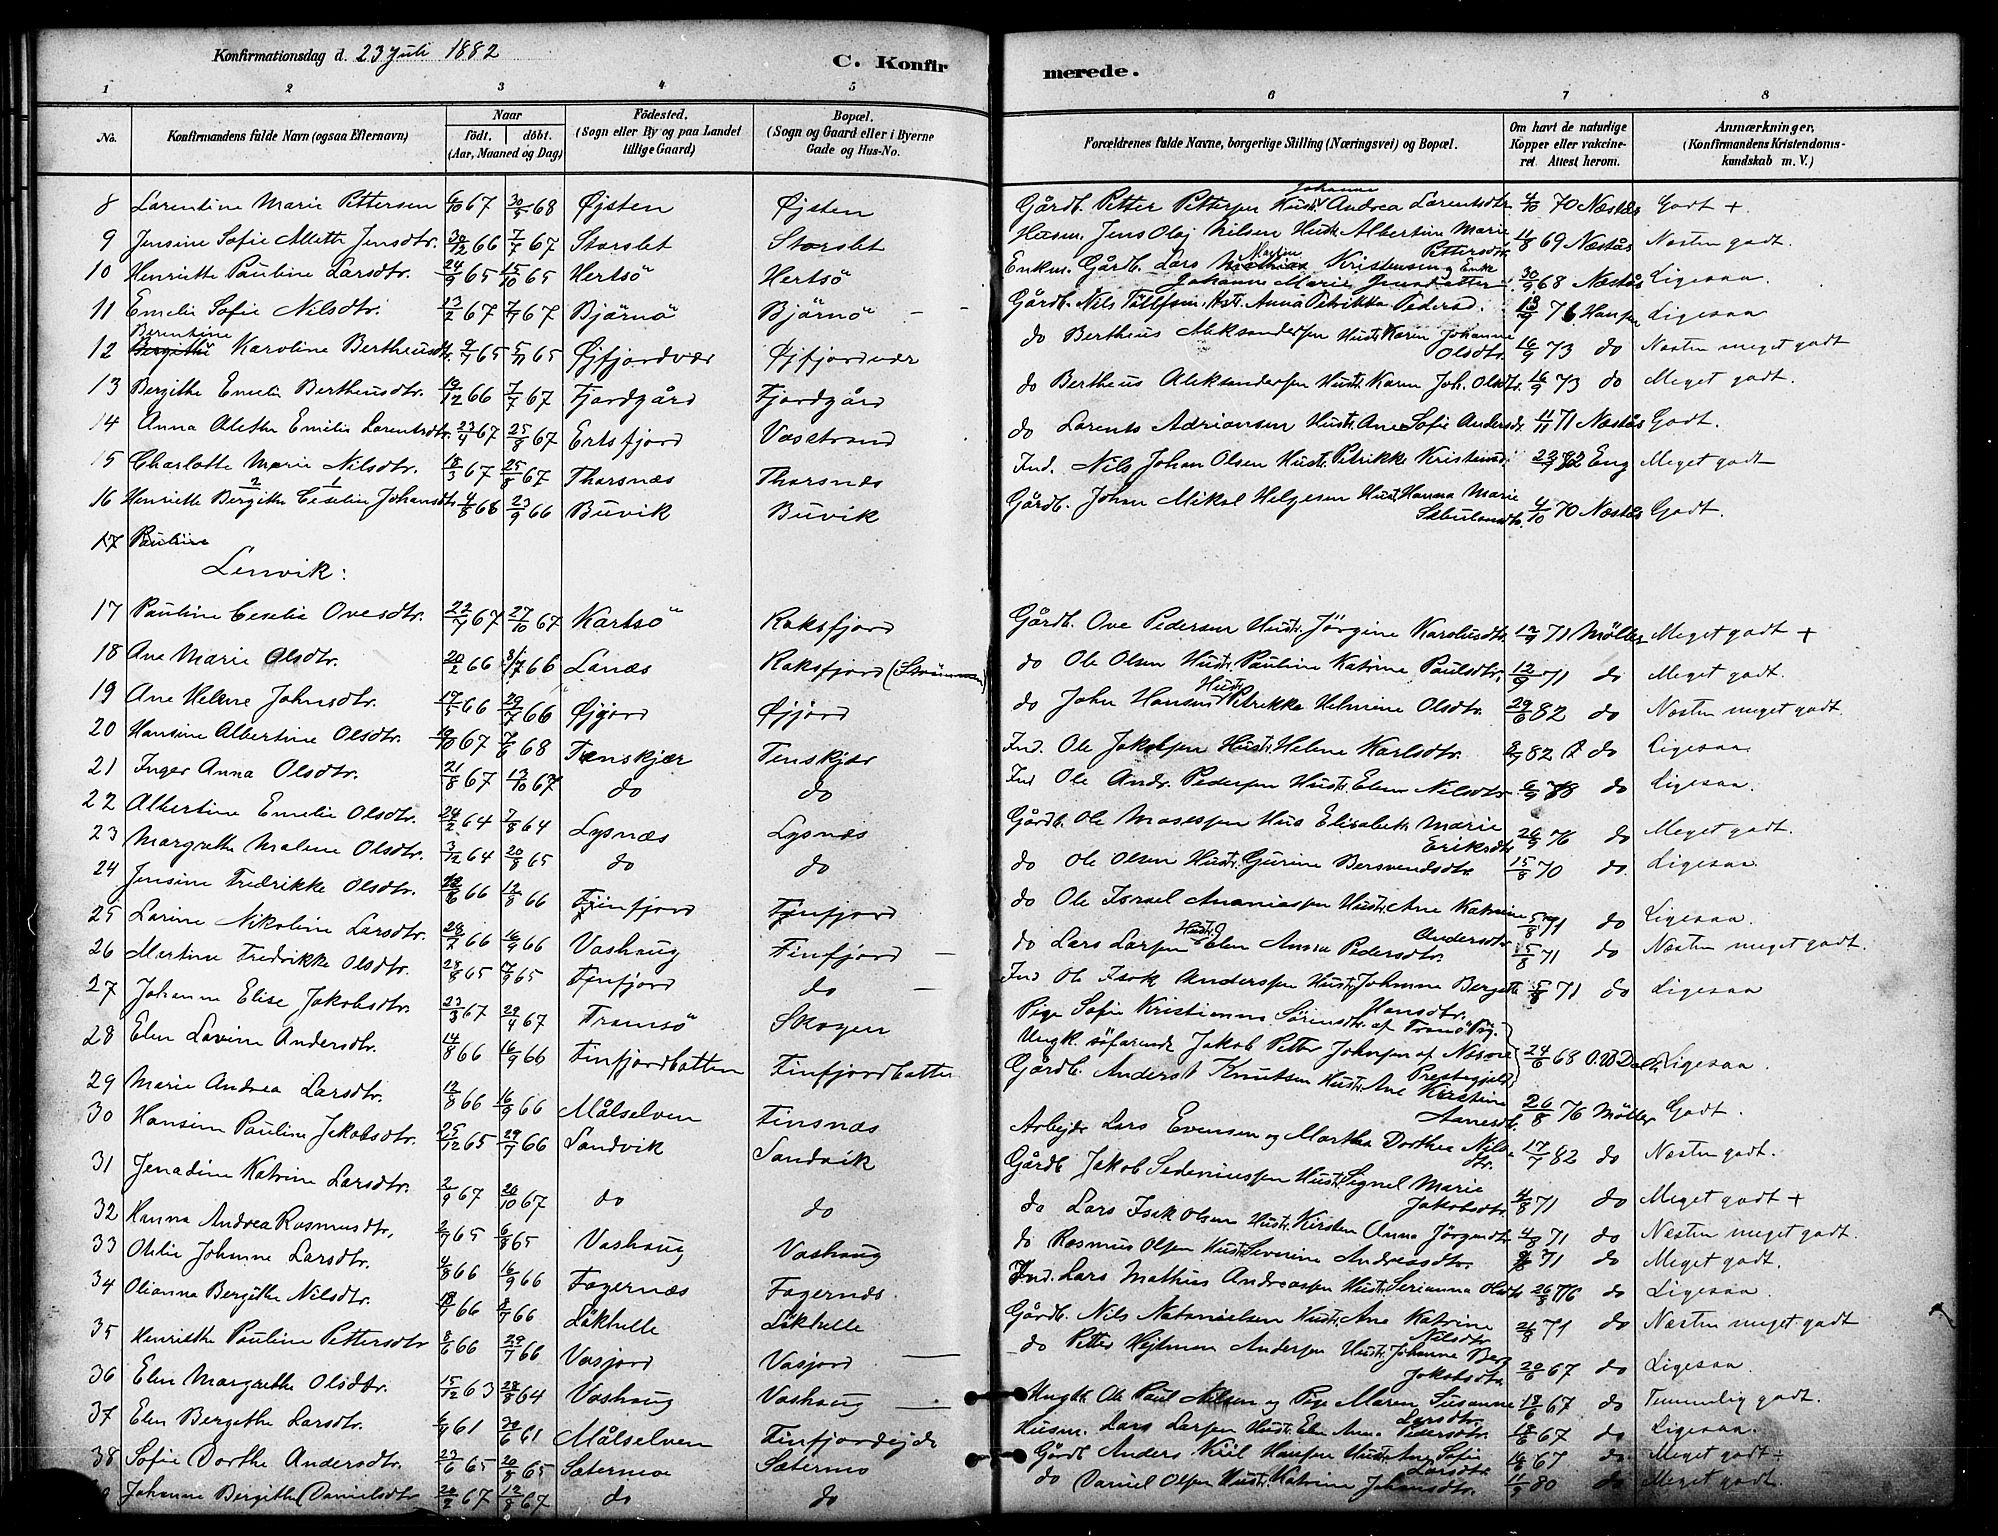 Konfirmationsdag d. 23 Juli 1882
C. Konfirmerede.
1 2 3 4 5 6 7 8
No. Konfirmandens fulde Navn (ogsaa Efternavn) Naar födt. döbt. (Aar, Maaned og Dag) Födested. (Sogn eller By og paa Landet tillige Gaard) Bopæl. (Sogn og Gaard eller i Byerne Gade og Hus-No. Forældrenes fulde Navne, borgerlige Stilling (Næringsvei) og Bopæl. Om havt de naturlige Kopper eller vakcineret. Attest herom. Anmærkninger. (Konfirmandens Kristendomskundskab m. V.)
8 Larentine Marie Pettersen 6/10 67 30/5 68 Øjsten Øjsten Gårdb. Petter Pettersen Hustr. Johanne Andrea Larentsdtr. 4/10 70 Næstås Godt +
9 Jensine Sofie Aleth Jensdtr. 30/12 66 7/7 67 Storslet Storslet Husm. Jens Olaj Nilsen Hustr. Albertine Marie Pettersdtr. 4/8 69 Næstås Næsten godt.
10 Henriette Pauline Larsdtr. 24/9 65 15/10 65 Hertsö Hertsö Enkm. Gårdb. Lars Kristensen og Enke Johanne Marie Jensdatter 30/9 68 Næstås Ligesaa
11 Emelie Sofie Nilsdtr. 13/2 67 7/7 67 Björnö Björnö Gårdb. Nils Tollfsen, Hstr. Anna Petrikke Pedersd. 18/9 76 Hansen Ligesaa
12 Berentine Karoline Bertheusdtr. 9/7 65 5/11 65 Øjfjordvær Øjfjordvær do Bertheus Aleksandersen Hustr. Karen Johanne Olsdtr. 16/9 73 do Næsten meget godt
13 Bergithe Emelie Bertheusdtr. 19/12 66 7/7 67 Fjordgård Fjordgård do Bertheus Aleksandersen Hustr. Karen Joh. Olsdtr. 16/9 73 do Meget godt.
14 Anna Alethe Emilie Larentsdtr. 23/4 67 25/8 67 Ersfjord Vasstrand do Larents Adriansen Hustr. Ane Sofie Andersdr. 4/11 71 Næstås Godt.
15 Charlotte Marie Nilsdtr. 18/3 67 25/8 67 Thorsnæs Thorsnæs Ind. Nils Johan Olsen Hustr. Petrikke Kristensd. 82 Eng Meget godt
16 Henriette Bergithe Ceselie Johansdtr. 4/8 68 23/9 66 Buvik Buvik Gårdb. Johan Mikal Helgesen Hust. Hanna Marie Sebulonsdtr. 4/10 70 Næstås Godt.
17 Pauline
Lenvik:
17 Pauline Ceselie Ovesdtr. 22/7 67 27/10 67 Kartsö Roksfjord Gårdb. Ove Pedersen Hustr. Jörgine Karolusdtr. 12/9 71 Møller Meget godt +
18 Ane Marie Olsdtr. 20/2 66 8/7 66 Lanæs Roksfjord (Strömmen) do Ole Olsen Hustr. Pauline Katrine Paulsdtr. 12/9 71 do Meget godt.
19 Ane Helene Johnsdtr. 17/5 66 29/7 66 Øjjord Øjjord do John Hansen Hustr. Petrikke Helmine Olsdtr. 29/6 82 do Næsten meget godt.
20 Hansine Albertine Olsdtr. 19/10 67 7/6 68 Tenskjær Tenskjær Ind. Ole Jakobsen Hustr. Helene Karlsdtr. 82 do Ligesaa
21 Inger Anna Olsdtr. 21/8 67 13/10 67 do do Ind Ole Andr. Pedersen Hustr. Elen Nilsdtr. do Ligesaa
22 Albertine Emelie Olsdtr. 24/2 64 7/8 64 Lysnæs Lysnæs Gårdb. Ole Mosessen Hus Elisabeth Marie Eriksdtr. 26/9 76 do Meget godt.
23 Margrethe Malene Olsdtr. 3/12 64 20/8 65 do do do Ole Olsen Hustr. Gurine Bersvendsdtr. 15/8 70 do Ligesaa
24 Jensine Fredrikke Olsdtr. 66 12/8 66 Finfjord Finfjord do Ole Israel Ananiassen Hustr. Ane Katrine Andersdtr. 5/8 71 do Ligesaa.
25 Larine Nikoline Larsdtr. 28/7 66 16/9 66 Vashaug Finfjord do Lars Larsen Hustr. Elen Anna Pedersdtr. 15/8 71 do Næsten meget godt.
26 Martine Fredrikke Olsdtr. 28/8 65 17/9 65 Finfjord do Ind Ole Isak Anderssen Hustr. Johanne Bergith Hansdtr. 5/8 71 do Ligesaa
27 Johanne Elise Jakobsdtr. 23/3 67 29/4 67 Tromsö Skogen Pige Sofie Kristianna Sörensdtr. af Tromö By. Ungk. söfarende Jakob Petter Johnsen af Præstegjeld 24/6 68 Ligesaa.
28 Elen Lavine Andersdtr. 14/8 66 16/9 66 Finfjordbotten Finfjordbotten Gårdb. Anders Knutsen Hustr. Ane Kirstine 26/8 76 Møller Godt.
29 Marie Andrea Larsdtr. 12/8 66 16/9 66 Målselven Finsnæs Arbejdr Lars Evensen og Martha Dorthea Nilsdtr. 17/7 82 do Næsten godt.
30 Hansine Pauline Jakobsdtr. 25/12 65 29/7 66 Sandvik Sandvik Gårdb. Jakob Sedeniussen Hust. Signel Marie Jakobsdtr. 4/8 71 do Meget godt +
31 Jenadine Katrine Larsdtr. 2/9 67 20/10 67 do do do Lars Isak Olsen Hustr. Kirsten Anna Jörgensdtr. 4/8 71 do Næsten meget godt.
32 Hanna Andrea Rasmusdtr. 65 6/8 65 Vashaug Vashaug do Rasmus Olsen Hustr. Severine Andreasdtr. 71 do Meget godt.
33 Otelie Johanne Larsdtr. 4/8 66 16/9 66 Fagernæs Fagernæs Ind. Lars Mathias Andreassen Hustr. Serianna Olsdtr. 26/8 76 do Ligesaa.
34 Olianna Bergithe Nilsdtr. 66 8/7 66 Läkhelle Läkhelle Gårdb. Nils Natanielsen Hustr. Ane Katrine Nilsdtr. 71 do Næsten meget godt
35 Henriette Pauline Pettersdtr. 8/6 66 29/7 66 Vasjord Vasjord do Petter Hejtman Andersen Hustr. Johanne Berg Jakobsdtr. 20/6 67 do Ligesaa.
36 Elen Margrethe Olsdtr. 15/12 63 28/8 64 Vashaug Vashaug Ungk. Ole Paul Nilsen og Pige Maren Susanne Larsdtr. 18/6 67 do Temmelig godt.
37 Elen Bergethe Larsdtr. 61 30/6 61 Målselven Finfjordejde Husm. Lars Larsen Hustr. Elen Anna Pedersdtr. 18/6 67 do Ligesaa.
38 Sofie Dorthe Andersdtr. 23/6 65 20/8 65 Sætermoe Sætermo Gårdb Anders Kiil Hansen Hustr. Ane Sofie Larsdtr. 67 do. Meget godt +
Johanne Bergithe Danielsdtr 20/2 67 12/8 67 do do do Daniel Olsen Hustr. Katrine Johansdtr. 11/9 80 do Meget godt.